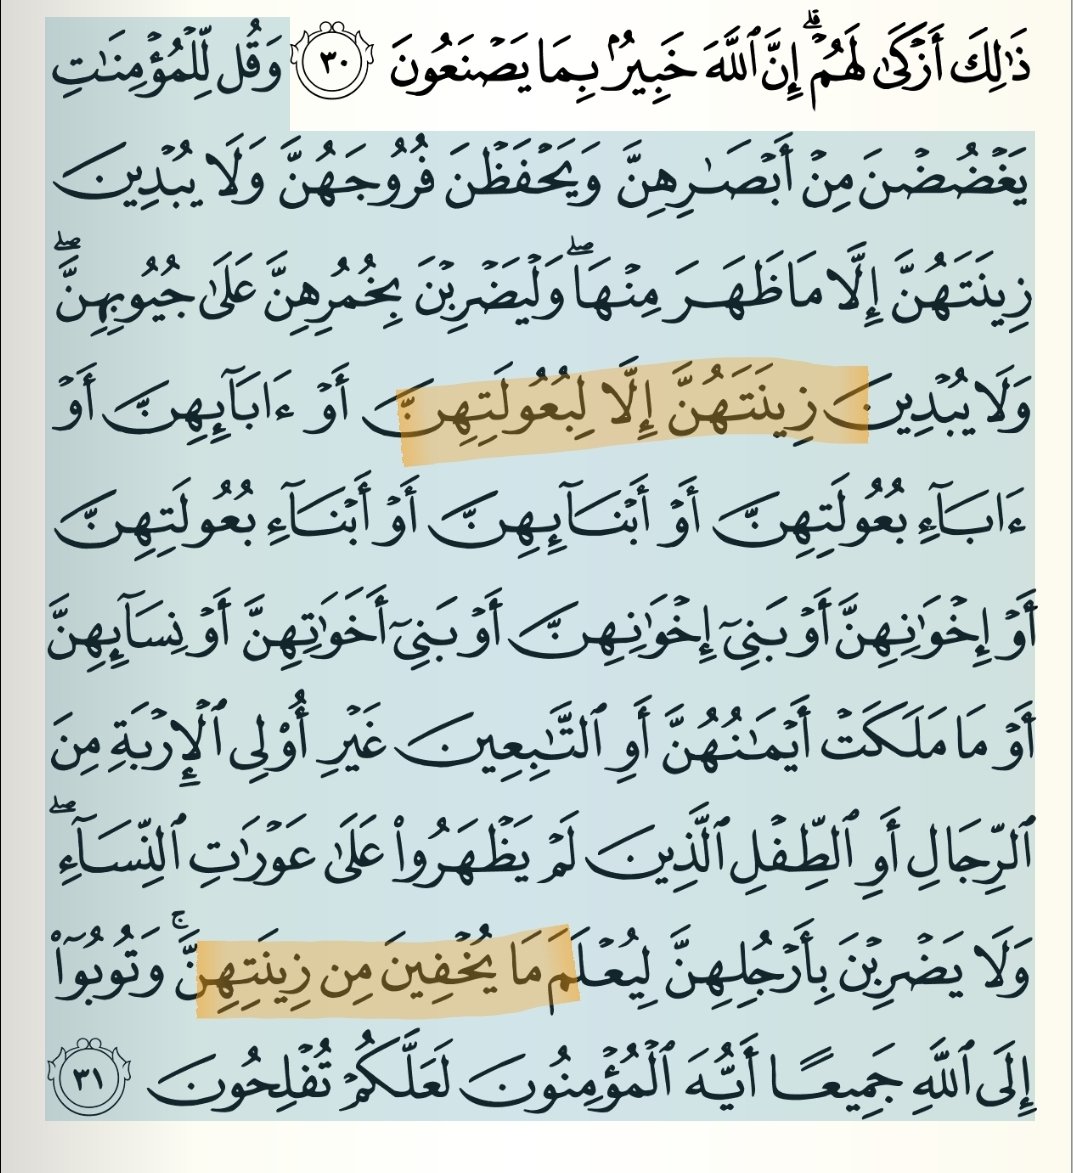 ذَٰلِكَ أَزْكَىٰ لَهُمْ ۗ إِنَّ ٱللَّهَ خَبِيرٌۢ بِمَا يَصْنَعُونَ ٣٠ وَقُل لِّلْمُؤْمِنَٰتِ
يَغْضُضْنَ مِنْ أَبْصَٰرِهِنَّ وَيَحْفَظْنَ فُرُوجَهُنَّ وَلَا يُبْدِينَ
زِينَتَهُنَّ إِلَّا مَا ظَهَرَ مِنْهَا ۖ وَلْيَضْرِبْنَ بِخُمُرِهِنَّ عَلَىٰ جُيُوبِهِنَّ ۖ
وَلَا يُبْدِينَ زِينَتَهُنَّ إِلَّا لِبُعُولَتِهِنَّ أَوْ ءَابَآئِهِنَّ أَوْ
ءَابَآءِ بُعُولَتِهِنَّ أَوْ أَبْنَآئِهِنَّ أَوْ أَبْنَآءِ بُعُولَتِهِنَّ
أَوْ إِخْوَٰنِهِنَّ أَوْ بَنِىٓ إِخْوَٰنِهِنَّ أَوْ بَنِىٓ أَخَوَٰتِهِنَّ أَوْ نِسَآئِهِنَّ
أَوْ مَا مَلَكَتْ أَيْمَٰنُهُنَّ أَوِ ٱلتَّٰبِعِينَ غَيْرِ أُو۟لِى ٱلْإِرْبَةِ مِنَ
ٱلرِّجَالِ أَوِ ٱلطِّفْلِ ٱلَّذِينَ لَمْ يَظْهَرُوا۟ عَلَىٰ عَوْرَٰتِ ٱلنِّسَآءِ ۖ
وَلَا يَضْرِبْنَ بِأَرْجُلِهِنَّ لِيُعْلَمَ مَا يُخْفِينَ مِن زِينَتِهِنَّ ۚ وَتُوبُوٓا۟
إِلَى ٱللَّهِ جَمِيعًا أَيُّهَ ٱلْمُؤْمِنُونَ لَعَلَّكُمْ تُفْلِحُونَ ٣١